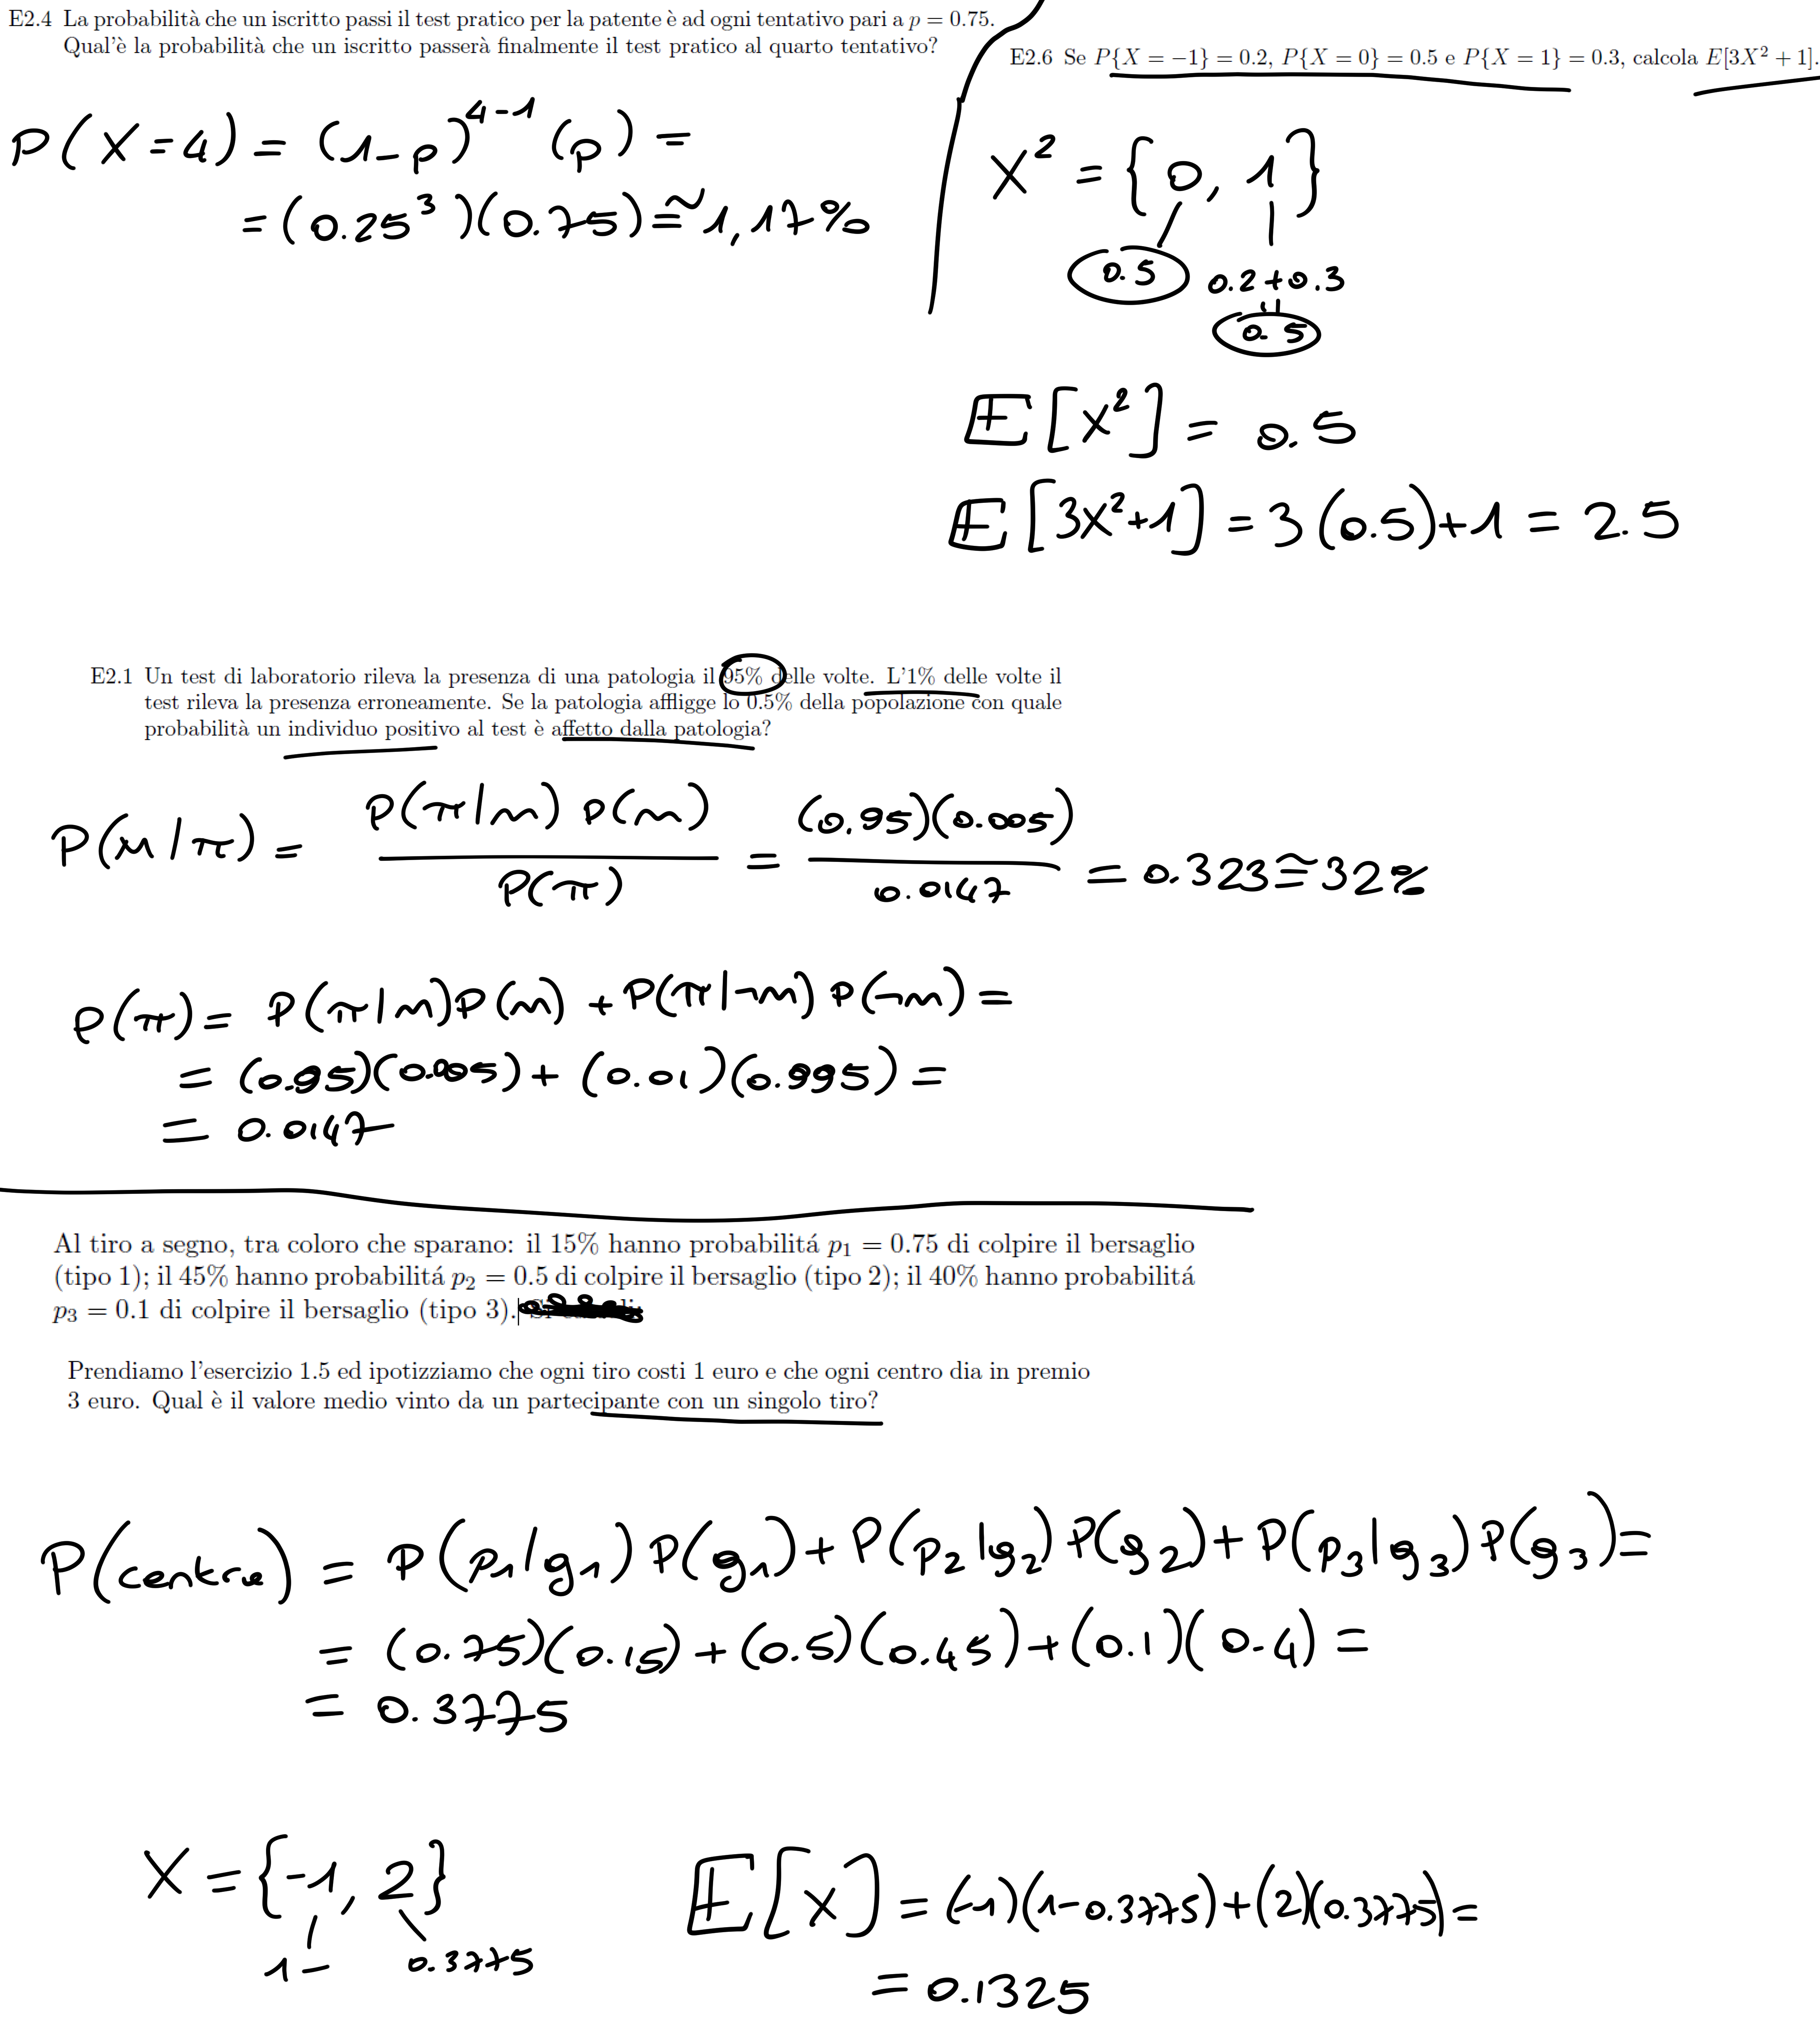 E2.4 La probabilità che un iscritto passi il test pratico per la patente è ad ogni tentativo pari a p = 0.75.
Qual'è la probabilità che un iscritto passerà finalmente il test pratico al quarto tentativo?
P(X=4) = (1-p)^{4-1} (p) =
= (0.25³)(0.75) ≅ 1,17%
E2.6 Se P{X = −1} = 0.2, P{X = 0} = 0.5 e P{X = 1} = 0.3, calcola E[3X² + 1].
X² = {0, 1}
0.5 0.2+0.3
=
0.5
E[X²] = 0.5
E[3X²+1] = 3(0.5)+1 = 2.5
E2.1 Un test di laboratorio rileva la presenza di una patologia il 95% delle volte. L'1% delle volte il
test rileva la presenza erroneamente. Se la patologia affligge lo 0.5% della popolazione con quale
probabilità un individuo positivo al test è affetto dalla patologia?
P(m|π) = P(π|m) P(m) / P(π) = (0.95)(0.005) / 0.0147 = 0.323 ≅ 32%
P(π) = P(π|m)P(m) + P(π|¬m) P(¬m) =
= (0.95)(0.005) + (0.01)(0.995) =
= 0.0147
Al tiro a segno, tra coloro che sparano: il 15% hanno probabilitá p₁ = 0.75 di colpire il bersaglio
(tipo 1); il 45% hanno probabilitá p₂ = 0.5 di colpire il bersaglio (tipo 2); il 40% hanno probabilitá
p₃ = 0.1 di colpire il bersaglio (tipo 3).
Prendiamo l'esercizio 1.5 ed ipotizziamo che ogni tiro costi 1 euro e che ogni centro dia in premio
3 euro. Qual è il valore medio vinto da un partecipante con un singolo tiro?
P(centro) = P(p₁|g₁) P(g₁) + P(p₂|g₂) P(g₂) + P(p₃|g₃) P(g₃) =
= (0.75)(0.15) + (0.5)(0.45) + (0.1)(0.4) =
= 0.3775
X = {-1, 2}
1- 0.3775
E[X] = (-1)(1-0.3775) + (2)(0.3775) =
= 0.1325